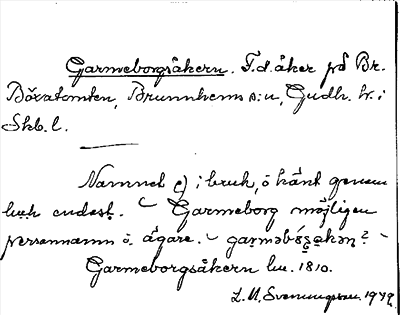 Garmeborgsåkern. F.d. åker på Br.
Böxatomten, Brunnhems s:n, Gudh. hr. i
Skb. l.
Namnet ej i bruk, o känt genom
endast. ⏑ Garmeborg möjligen
personnamn o. ägare. ⏑
Garmeborgsåkern lu. 1810.
L. M. Svenungsson. 1949